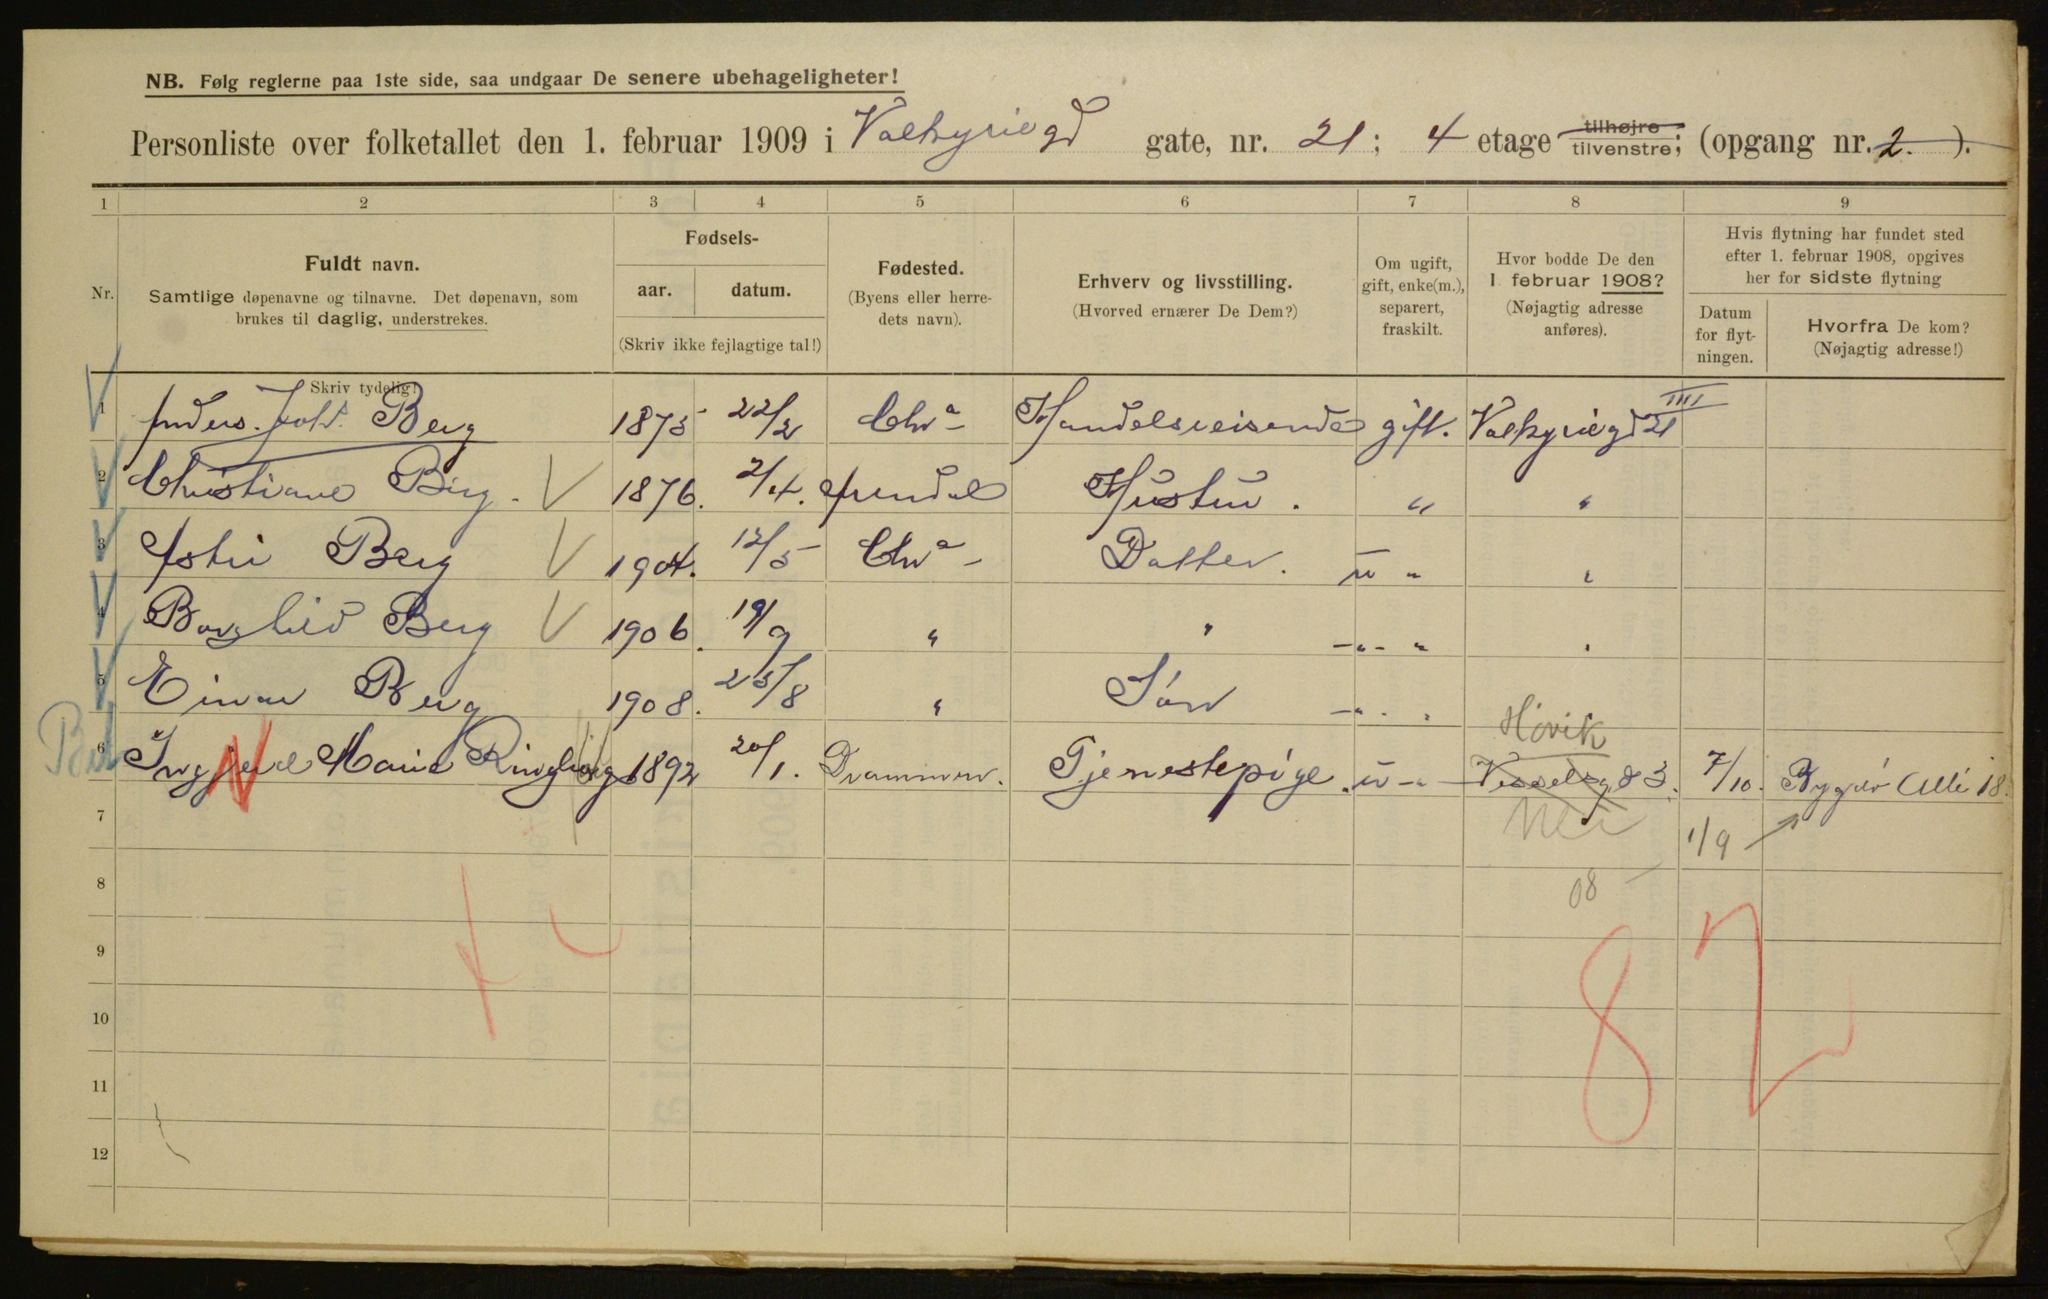 NB. Følg reglerne paa 1ste side, saa undgaar De senere ubehageligheter!
Personliste over folketallet den 1. februar 1909 i Valkyriegd gate, nr. 21; 4 etage tilhøjre tilvenstre; (opgang nr. 2.).
1 2 3 4 5 6 7 8 9
Nr.
Fuldt navn.
Samtlige døpenavne og tilnavne. Det døpenavn, som
brukes til daglig, understrekes.
Skriv tydelig!
Fødsels-
aar. datum.
(Skriv ikke fejlagtige tal!)
Fødested.
(Byens eller herre-
dets navn).
Erhverv og livsstilling.
(Hvorved ernærer De Dem?)
Om ugift,
gift, enke(m.),
separert,
fraskilt.
Hvor bodde De den
1. februar 1908?
(Nøjagtig adresse
anføres).
Hvis flytning har fundet sted
efter 1. februar 1908, opgives
her for sidste flytning
Datum
for flyt-
ningen.
Hvorfra De kom?
(Nøjagtig adresse!)
1 Anders Joh. Berg 1875 22/2 Chra Handelsreisende gift. Valkyriegd 21 IIII
2 Christiane Berg. 1876. 2/4. Arendal Hustru. " "
3 Astri Berg 1904. 12/5 Chra Datter. u " "
4 Borghild Berg 1906. 19/9 " " -"- " "
5 Einar Berg 1908. 25/8 " Søn -"- "
Høvik
6 Marie 1892 20/1. Drammen. Tjenestepige u - " 3. 7/10. Bygdø Alle 18.
7 Nei 1/9
8 08 -
9
10
11
12
82